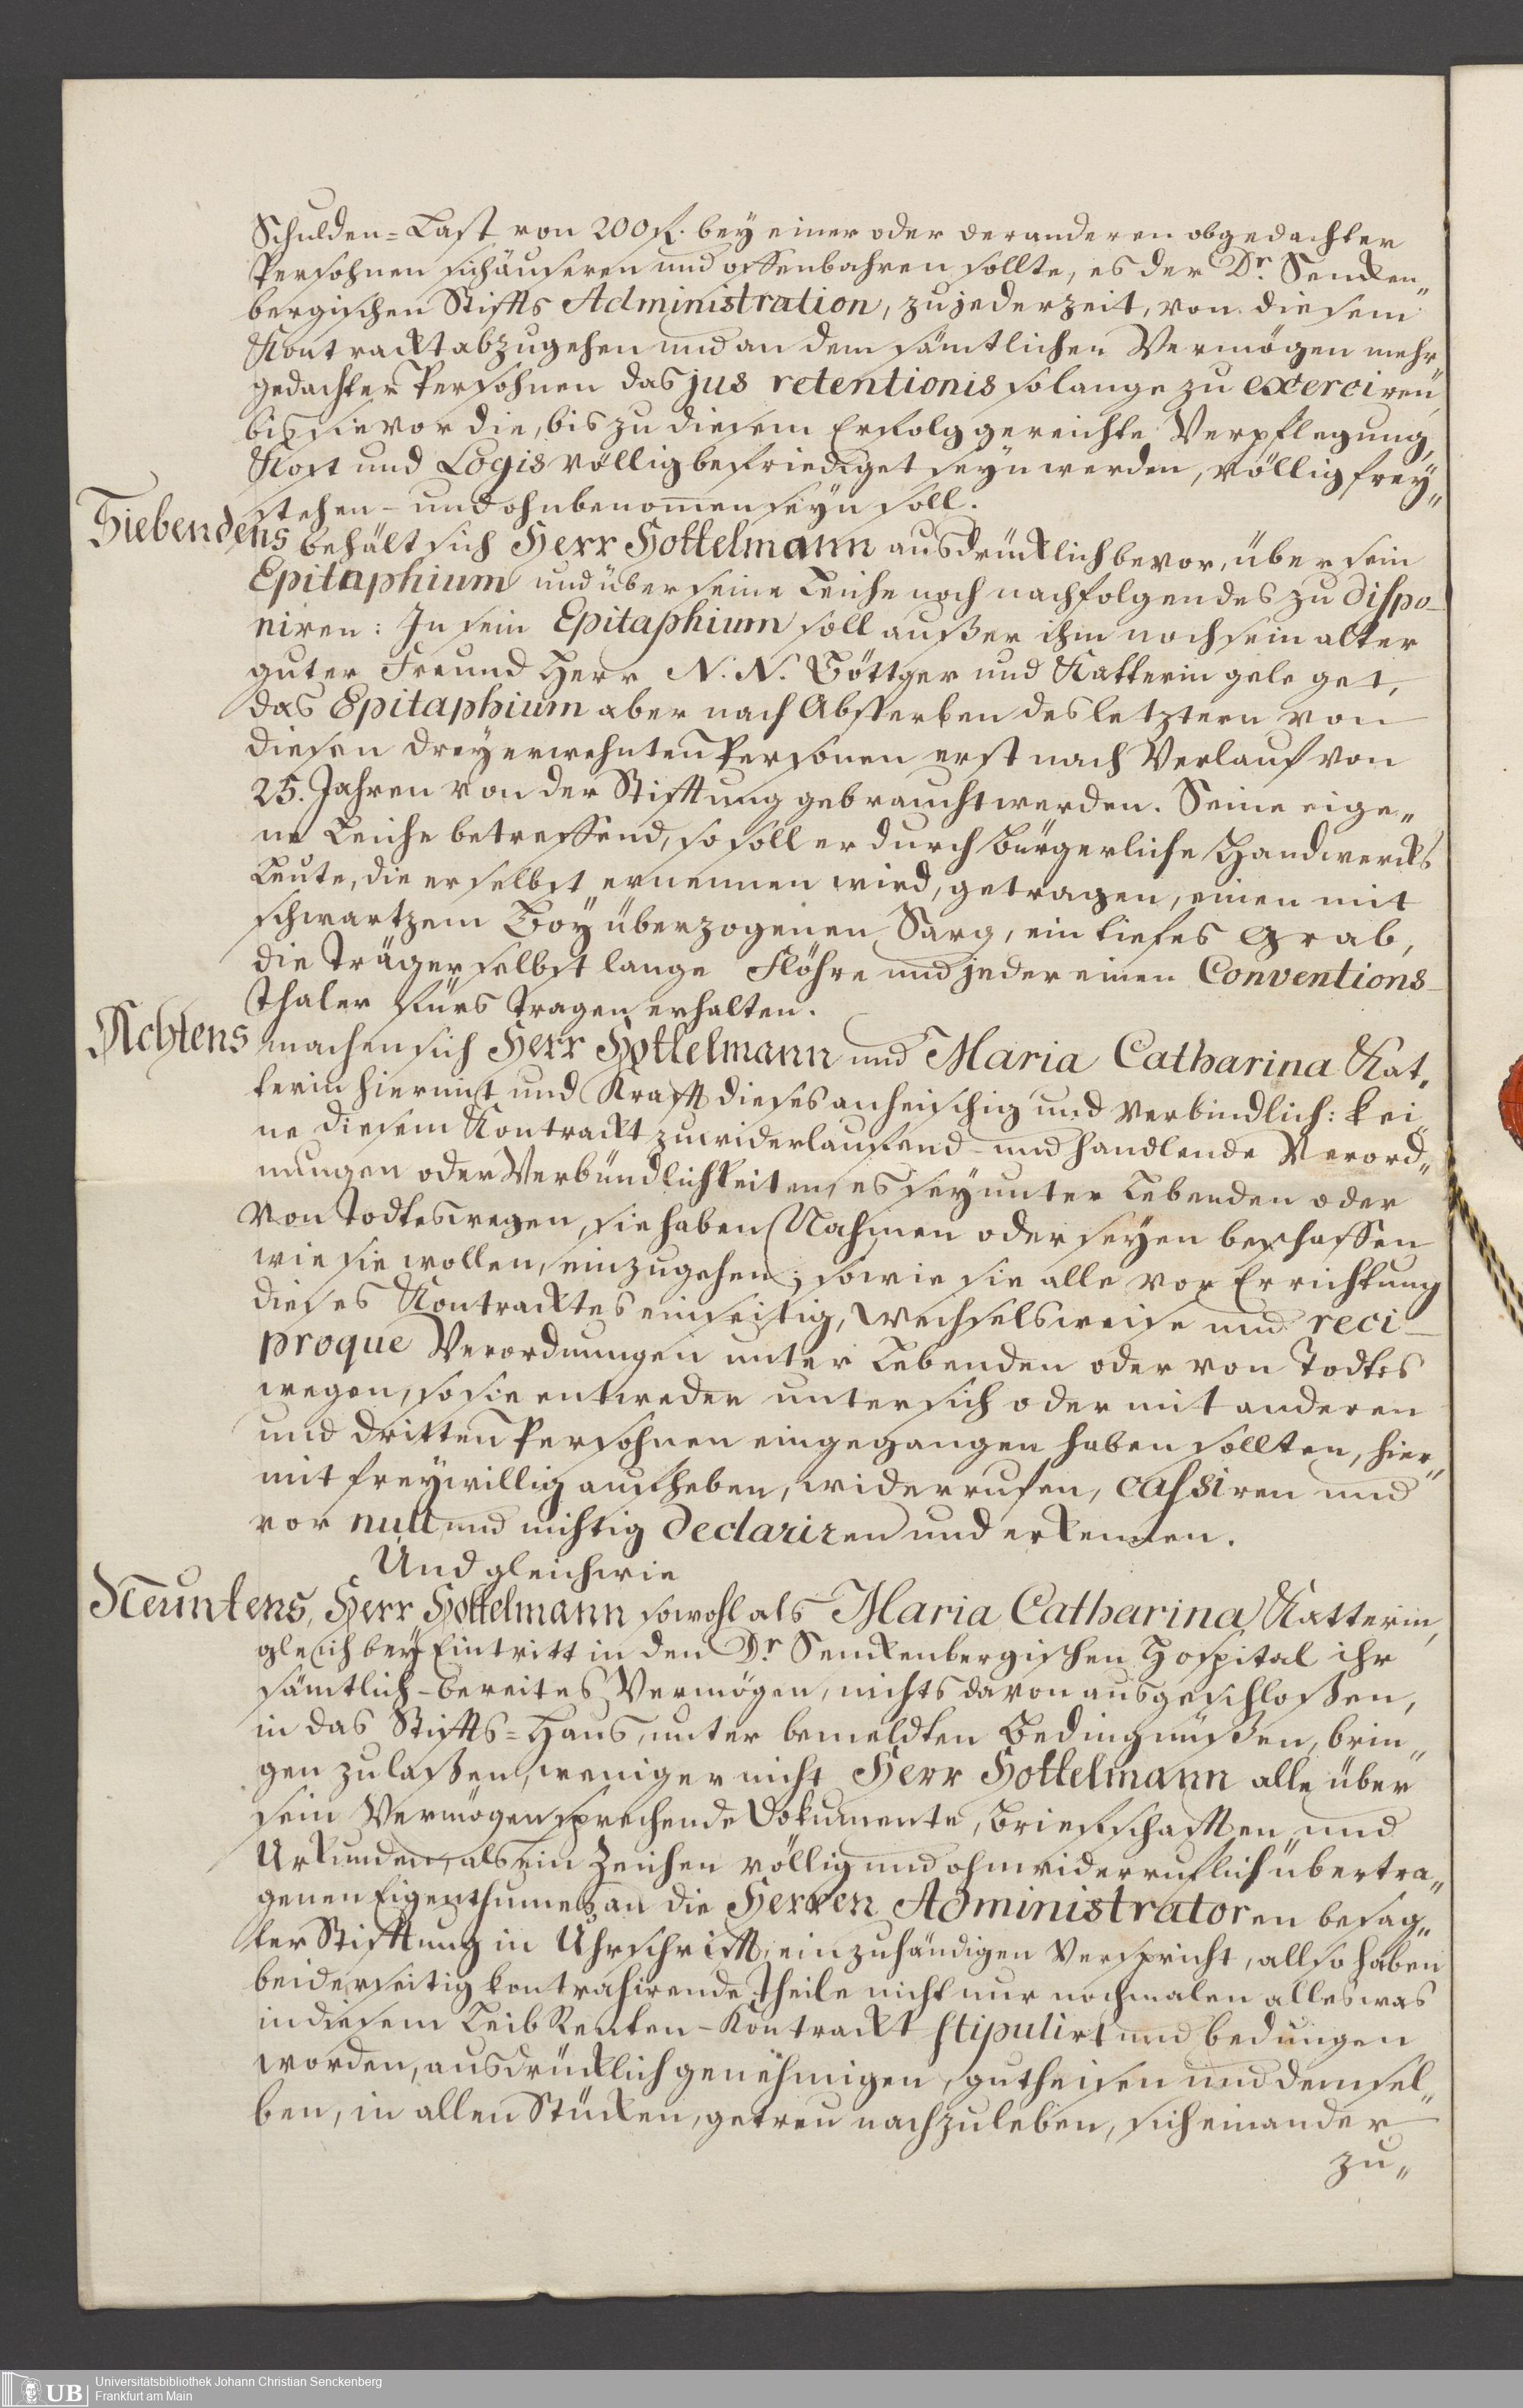 Schulden-Last von 200 fl. bey einer oder der anderen obgedachter
Persohnen sich äuseren und offenbahren sollte, es der Dr. Sencken„
bergischen Stiffts Administration, zu jederzeit, von diesem
Kontrackt abzugehen und an dem sämtlichen Vermögen mehr„
gedachter Persohnen das jus retentionis so lange zu exerciren
bis sie vor die, bis zu diesem Erfolg gereichte Verpflegung,
Kost und Logis völlig befriediget seyn werden, völlig frey„
stehen- und ohnbenomen seyn soll.
Siebendens behält sich Herr Hottelmann ausdrücklich bevor, über sein
Epitaphium und über seine Leiche noch nachfolgendes zu dispo-
niren: In sein Epitaphium soll außer ihm noch sein alter
guter Freund Herr N. N. Böttger und Katterin geleget,
das Epitaphium aber nach Absterben des letztern von
diesen drey erwehnten Personen erst nach Verlauf von
25. Jahren von der Stifftung gebraucht werden. Seine eige„
ne Leiche betreffend, so soll er durch bürgerliche Handwercks
Leute, die er selbst ernennen wird, getragen, einen mit
schwartzem Boy überzogenen Sarg, ein tiefes Grab,
die Träger selbst lange Flöhre und jeder einen Conventions-
Thaler fürs tragen erhalten.
Achtens machen sich Herr Hottelmann und Maria Catharina Kat„
terin hiermit und Krafft dieses anheischig und verbindlich: kei„
ne diesem Kontrackt zuwiderlaufend- und handlende Verord„
nungen oder Verbündlichkeiten, es sey unter Lebenden oder
von Todteswegen, sie haben Nahmen oder seyen beschaffen
wie sie wollen, einzugehen; so wie sie alle vor Errichtung
dieses Kontracktes einseitig, wechselsweise und reci-
proque Verordnungen unter Lebenden oder von Todtes
wegen, so sie entweder unter sich oder mit anderen
und dritten Persohnen eingegangen haben sollten, hier„
mit freywillig aufheben, widerrufen, cassiren und
vor null und nichtig declariren und erkennen.
Und gleichwie
Neuntens, Herr Hottelmann sowohl als Maria Catharina Katterin,
gleich bey Eintritt in den Dr. Senckenbergischen Hospital ihr
sämtlich-bereites Vermögen, nichts davon ausgeschloßen,
in das Stiffts-Haus, unter bemeldten Bedingnüßen, brin„
gen zu laßen, weniger nicht Herr Hottelmann alle über
sein Vermögen sprechende Dokumente, Briefschafften und
Urkunden, als ein Zeichen völlig und ohnwiderruflich übertra„
genen Eigenthumes an die Herren Administratoren besag„
ter Stifftung in Uhrschrifft, einzuhändigen verspricht, also haben
beiderseitig kontrahirende Theile nicht nur nochmalen alles was
in diesem Leib Renten-Kontrackt stipulirt und bedungen
worden, ausdrücklich genehmigen, gutheisen und demsel„
ben, in allen Stücken, getreu nachzuleben, sich einander
zu„
UB
Universitätsbibliothek Johann Christian Senckenberg
Frankfurt am Main